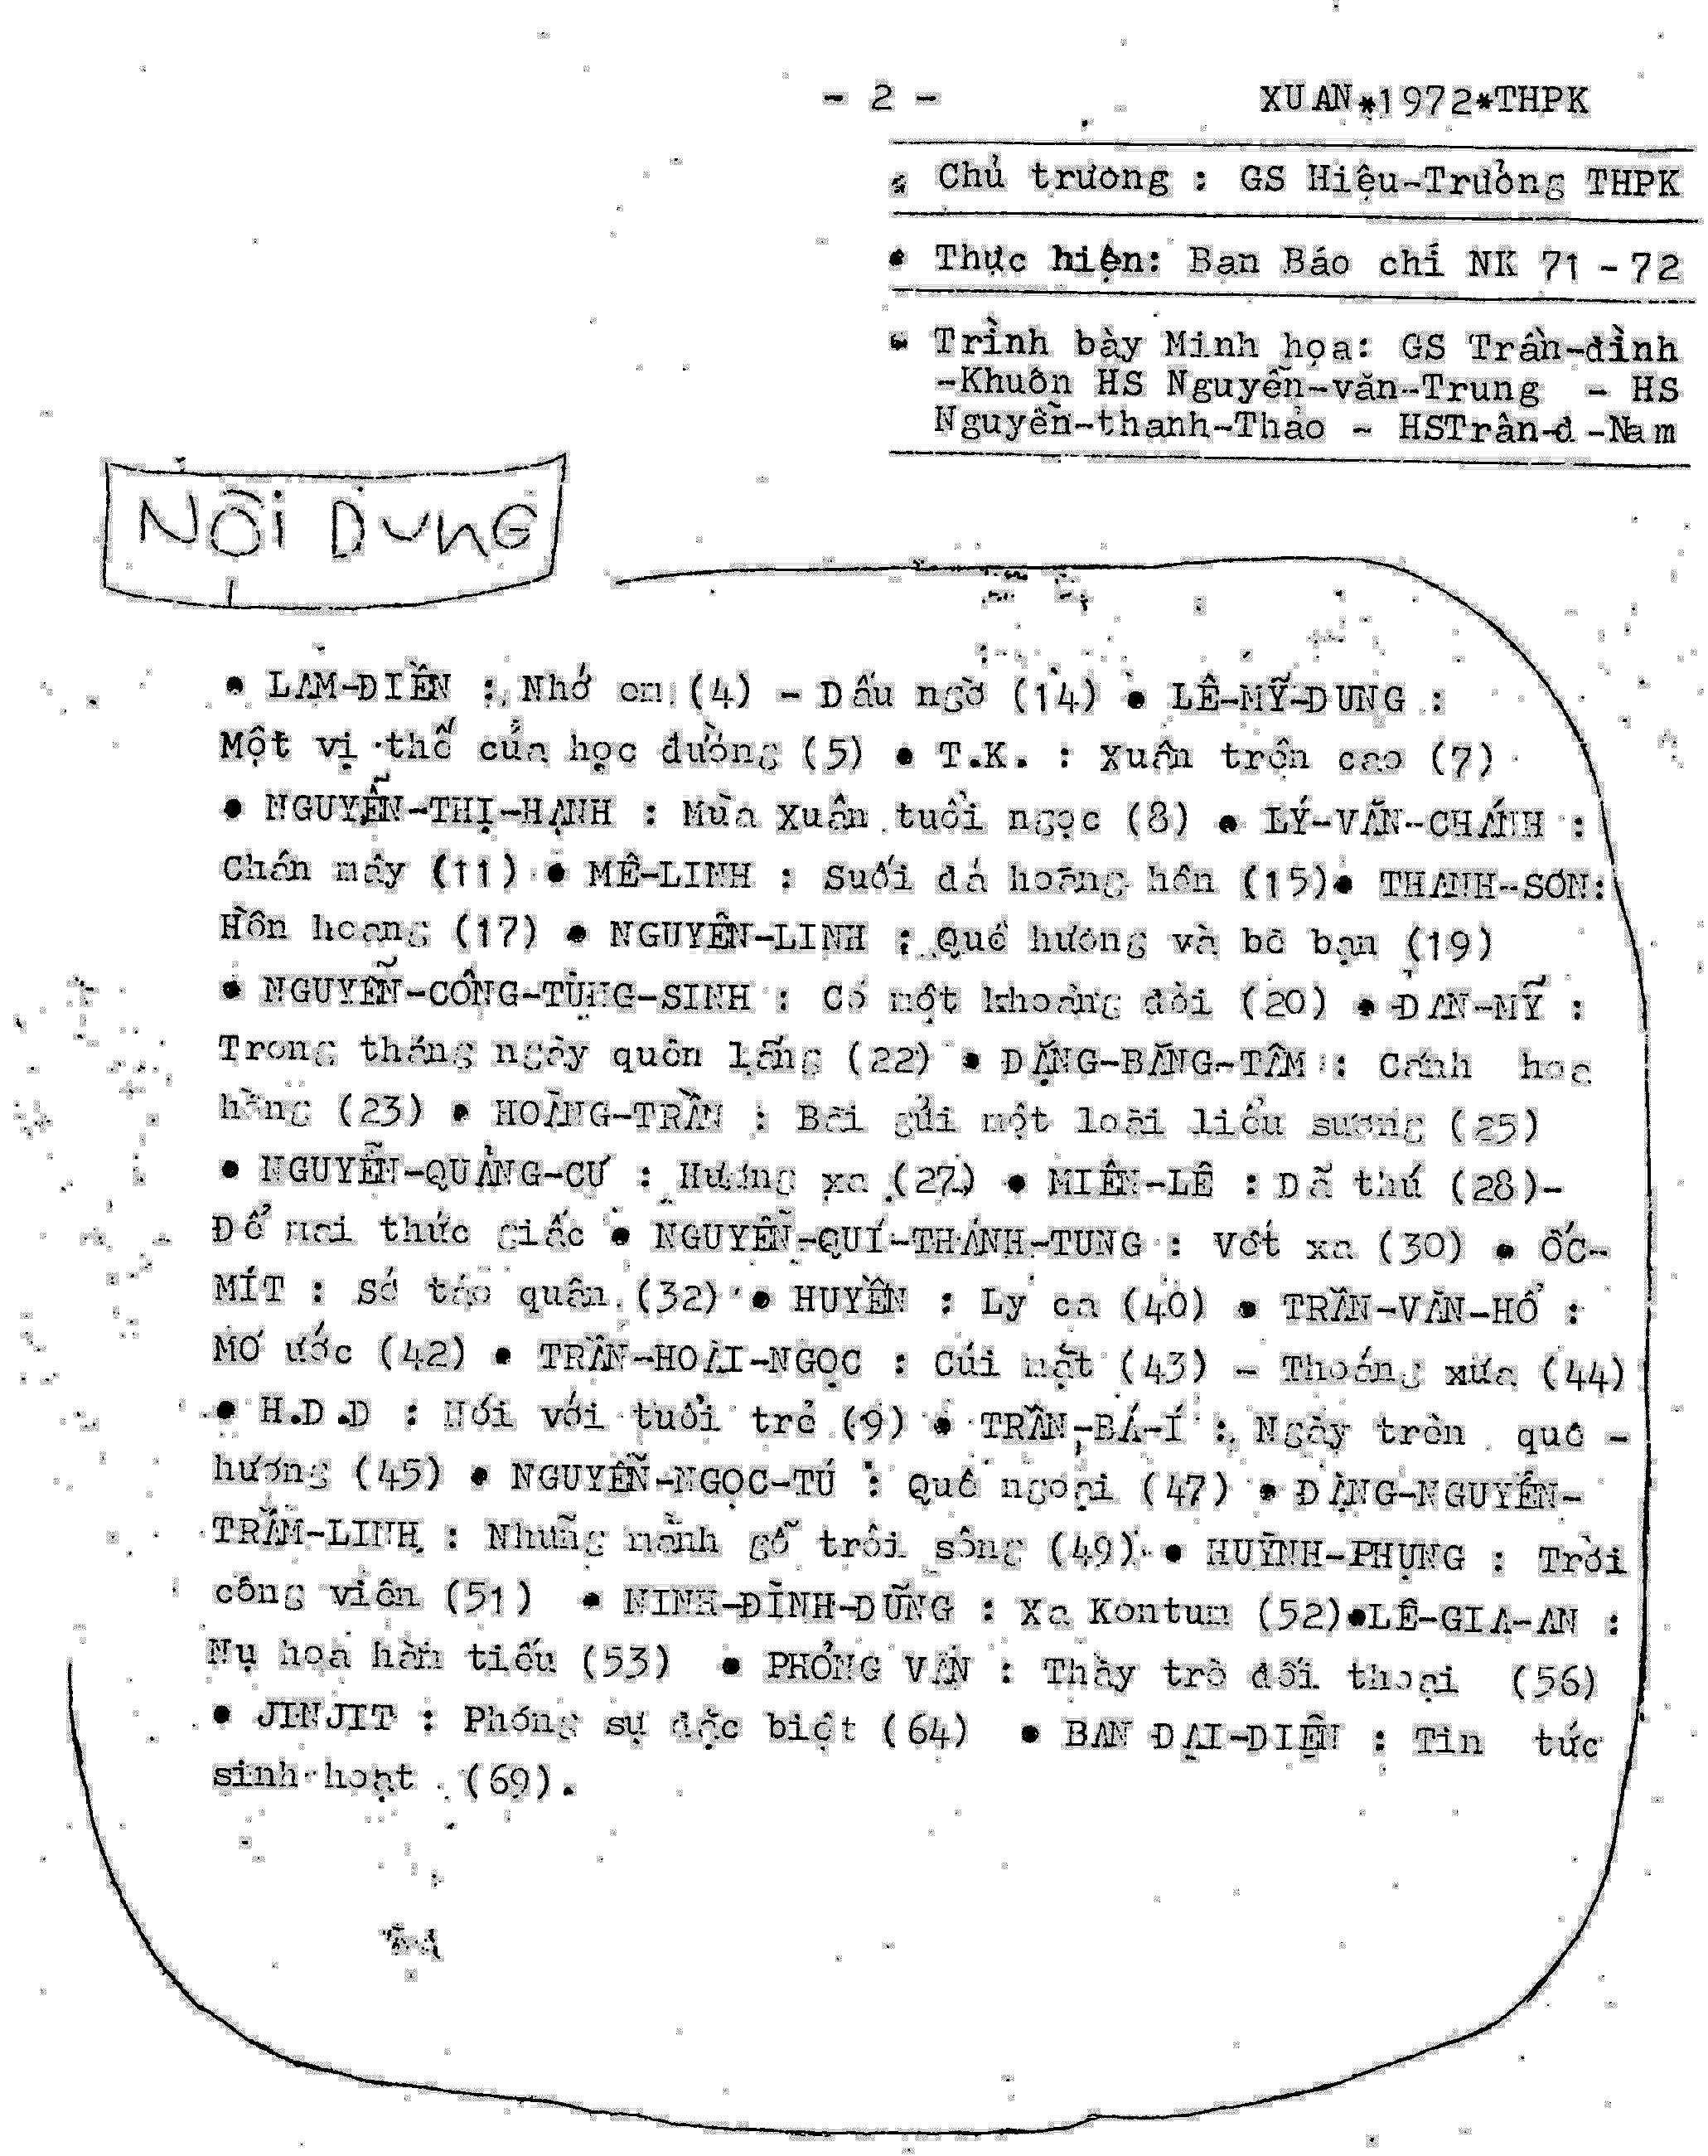 - 2 -
XUAN*1972*THPK
Chủ trương : GS Hiệu-Trưởng THPK
• Thực hiện: Ban Báo chí NK 71 - 72
• Trình bày Minh họa: GS Trần-đình
-Khuôn HS Nguyễn-văn-Trung - HS
Nguyễn-thanh-Thảo - HSTrân-đ-Nam
NỘI DUNG
• LAM-ĐIỀN : Nhớ ơn (4) - Dấu ngờ (14) • LÊ-MỸ-DUNG :
Một vị thế của học đường (5) • T.K. : Xuân trên cao (7)
• NGUYỄN-THỊ-HẠNH : Mùa Xuân tuổi ngọc (8) • LÝ-VĂN-CHÁNH :
Chân mây (11) • MÊ-LINH : Suối đá hoàng hôn (15)• THANH-SƠN:
Hồn hoang (17) • NGUYÊN-LINH : Quê hương và bè bạn (19)
• NGUYỄN-CÔNG-TÙNG-SINH : Có một khoảng đời (20) • ĐAN-MỸ :
Trong tháng ngày quên lãng (22) • ĐẶNG-BĂNG-TÂM : Cánh hoa
hồng (23) • HOÀNG-TRẦN : Bài gửi một loài liễu sương (25)
• NGUYỄN-QUẢNG-CƯ : Hương xa (27) • MIÊN-LÊ : Dã thú (28)-
Để mai thức giấc • NGUYỄN-QUÍ-THÁNH-TUNG : Vết xa (30) • ỐC-
MÍT : Sớ táo quân (32) • HUYỀN : Ly ca (40) • TRẦN-VĂN-HỔ :
Mơ ước (42) • TRẦN-HOÀI-NGỌC : Cúi mặt (43) - Thoáng xưa (44)
• H.D.D : Nói với tuổi trẻ (9) • TRẦN-BÁ-Í : Ngày trên quê -
hương (45) • NGUYỄN-NGỌC-TÚ : Quê ngoại (47) • ĐẶNG-NGUYÊN-
TRẦM-LINH : Những mảnh gỗ trôi sông (49) • HUỲNH-PHỤNG : Trời
công viên (51) • NINH-ĐÌNH-DŨNG : Xa Kontum (52)•LÊ-GIA-AN :
Nụ hoa hàm tiếu (53) • PHỎNG VẤN : Thầy trò đối thoại (56)
• JINJIT : Phóng sự đặc biệt (64) • BAN ĐẠI-DIỆN : Tin tức
sinh hoạt (69).